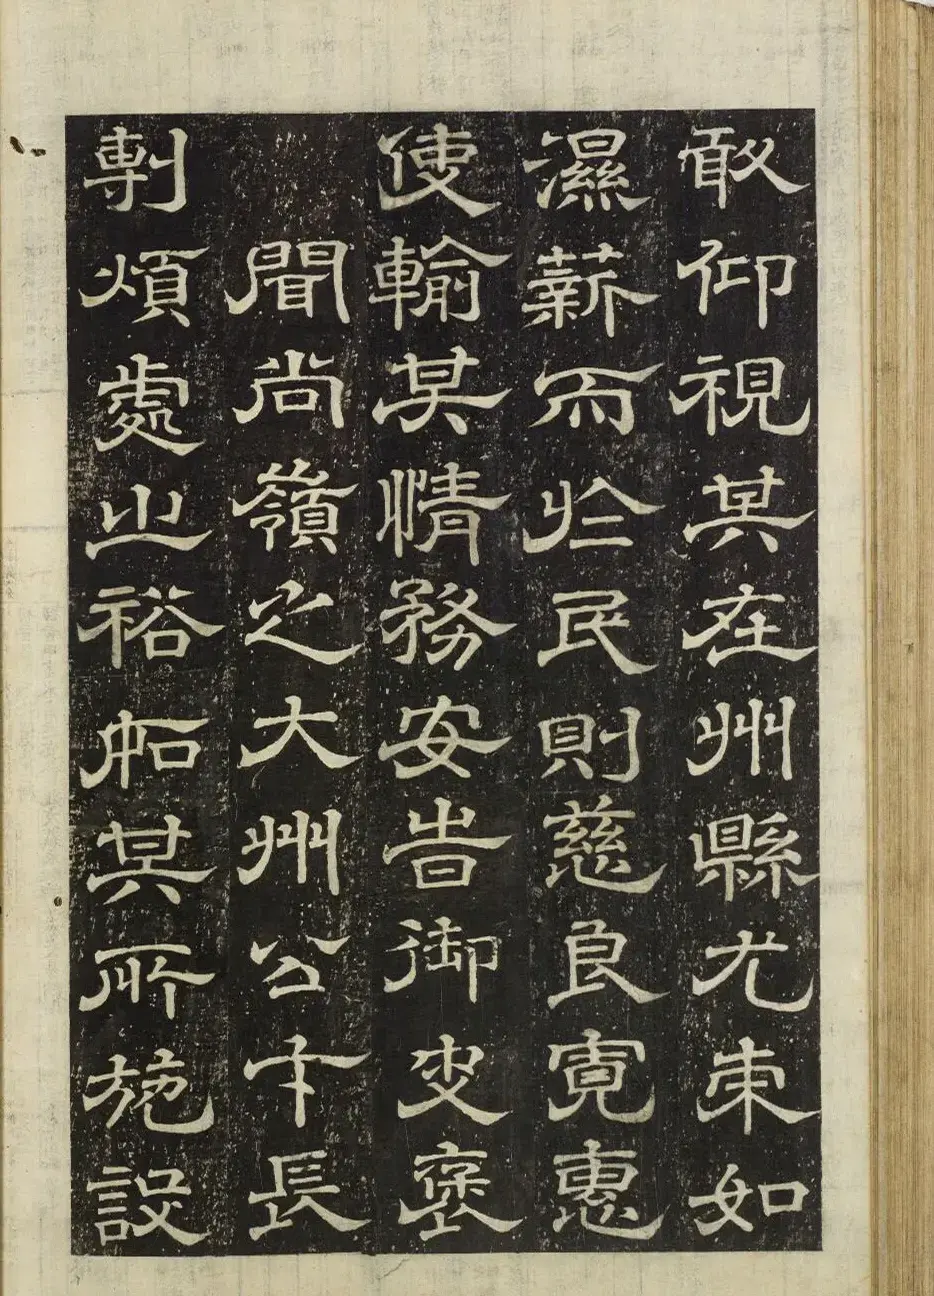 敢仰視其在州縣尤束如
濕薪而於民則慈良寬惠
使輸其情務安旹御史褒
聞尚嶺之大州公才長
剸煩處㞢裕如其所施設